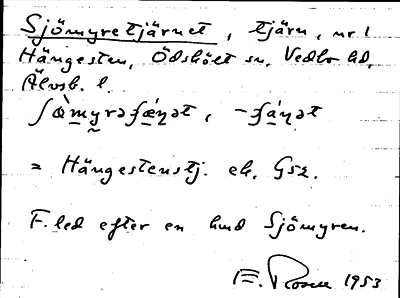 Sjömyretjärnet, tjärn, nr 1
Hängesten, Ödskölt sn, Vedbo hd,
Älvsb. l.
ʃœ̀myrəʃæ̀ṇət, -ʃáṇət
= Hängestenstj. ek. G52.
F. led efter en hmd Sjömyren.
E. Rosell 1953